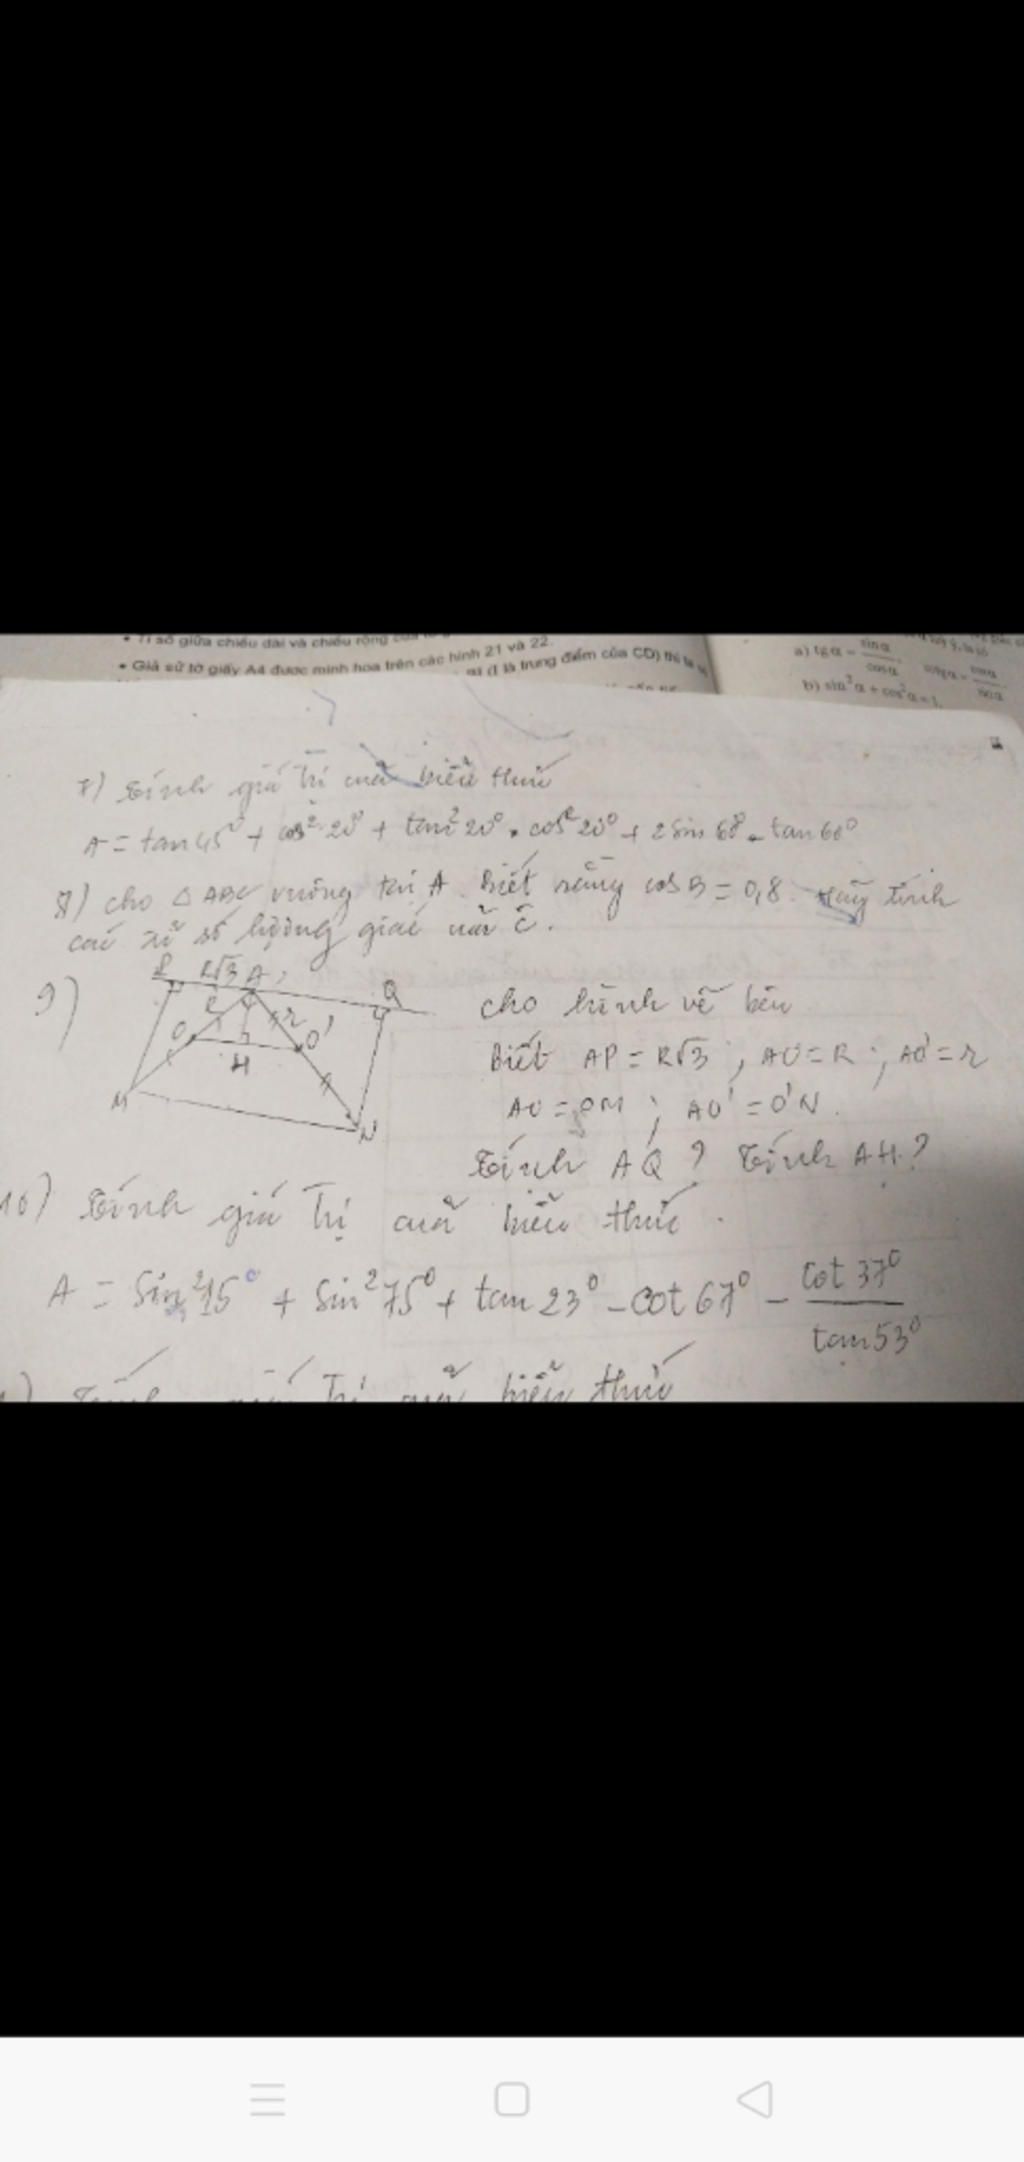 • Tỉ số giữa chiều dài và chiều rộng của
• Giả sử tờ giấy A4 được minh hoạ trên các hình 21 và 22.
(I là trung điểm của CD) thì ta
a) tgα = sinα / cosα
cotgα = cosα / sinα
b) sin²α + cos²α = 1.
7) Tính giá trị của biểu thức
A = tan 45° + cos² 20° + tan² 20° . cos² 20° + 2 sin 60° - tan 60°
8) cho △ ABC vuông tại A. Biết rằng cos B = 0,8. Hãy tính
các tỉ số lượng giác của Ĉ.
9)
P R√3 A Q
R r
O O'
H
M N
cho hình vẽ bên
Biết AP = R√3 ; AO = R ; AO' = r
AO = OM ; AO' = O'N.
Tính AQ ? Tính AH ?
10) Tính giá trị của biểu thức.
A = Sin² 15° + Sin² 75° + tan 23° - cot 67° - cot 37° / tan 53°
Tính giá trị của biểu thức